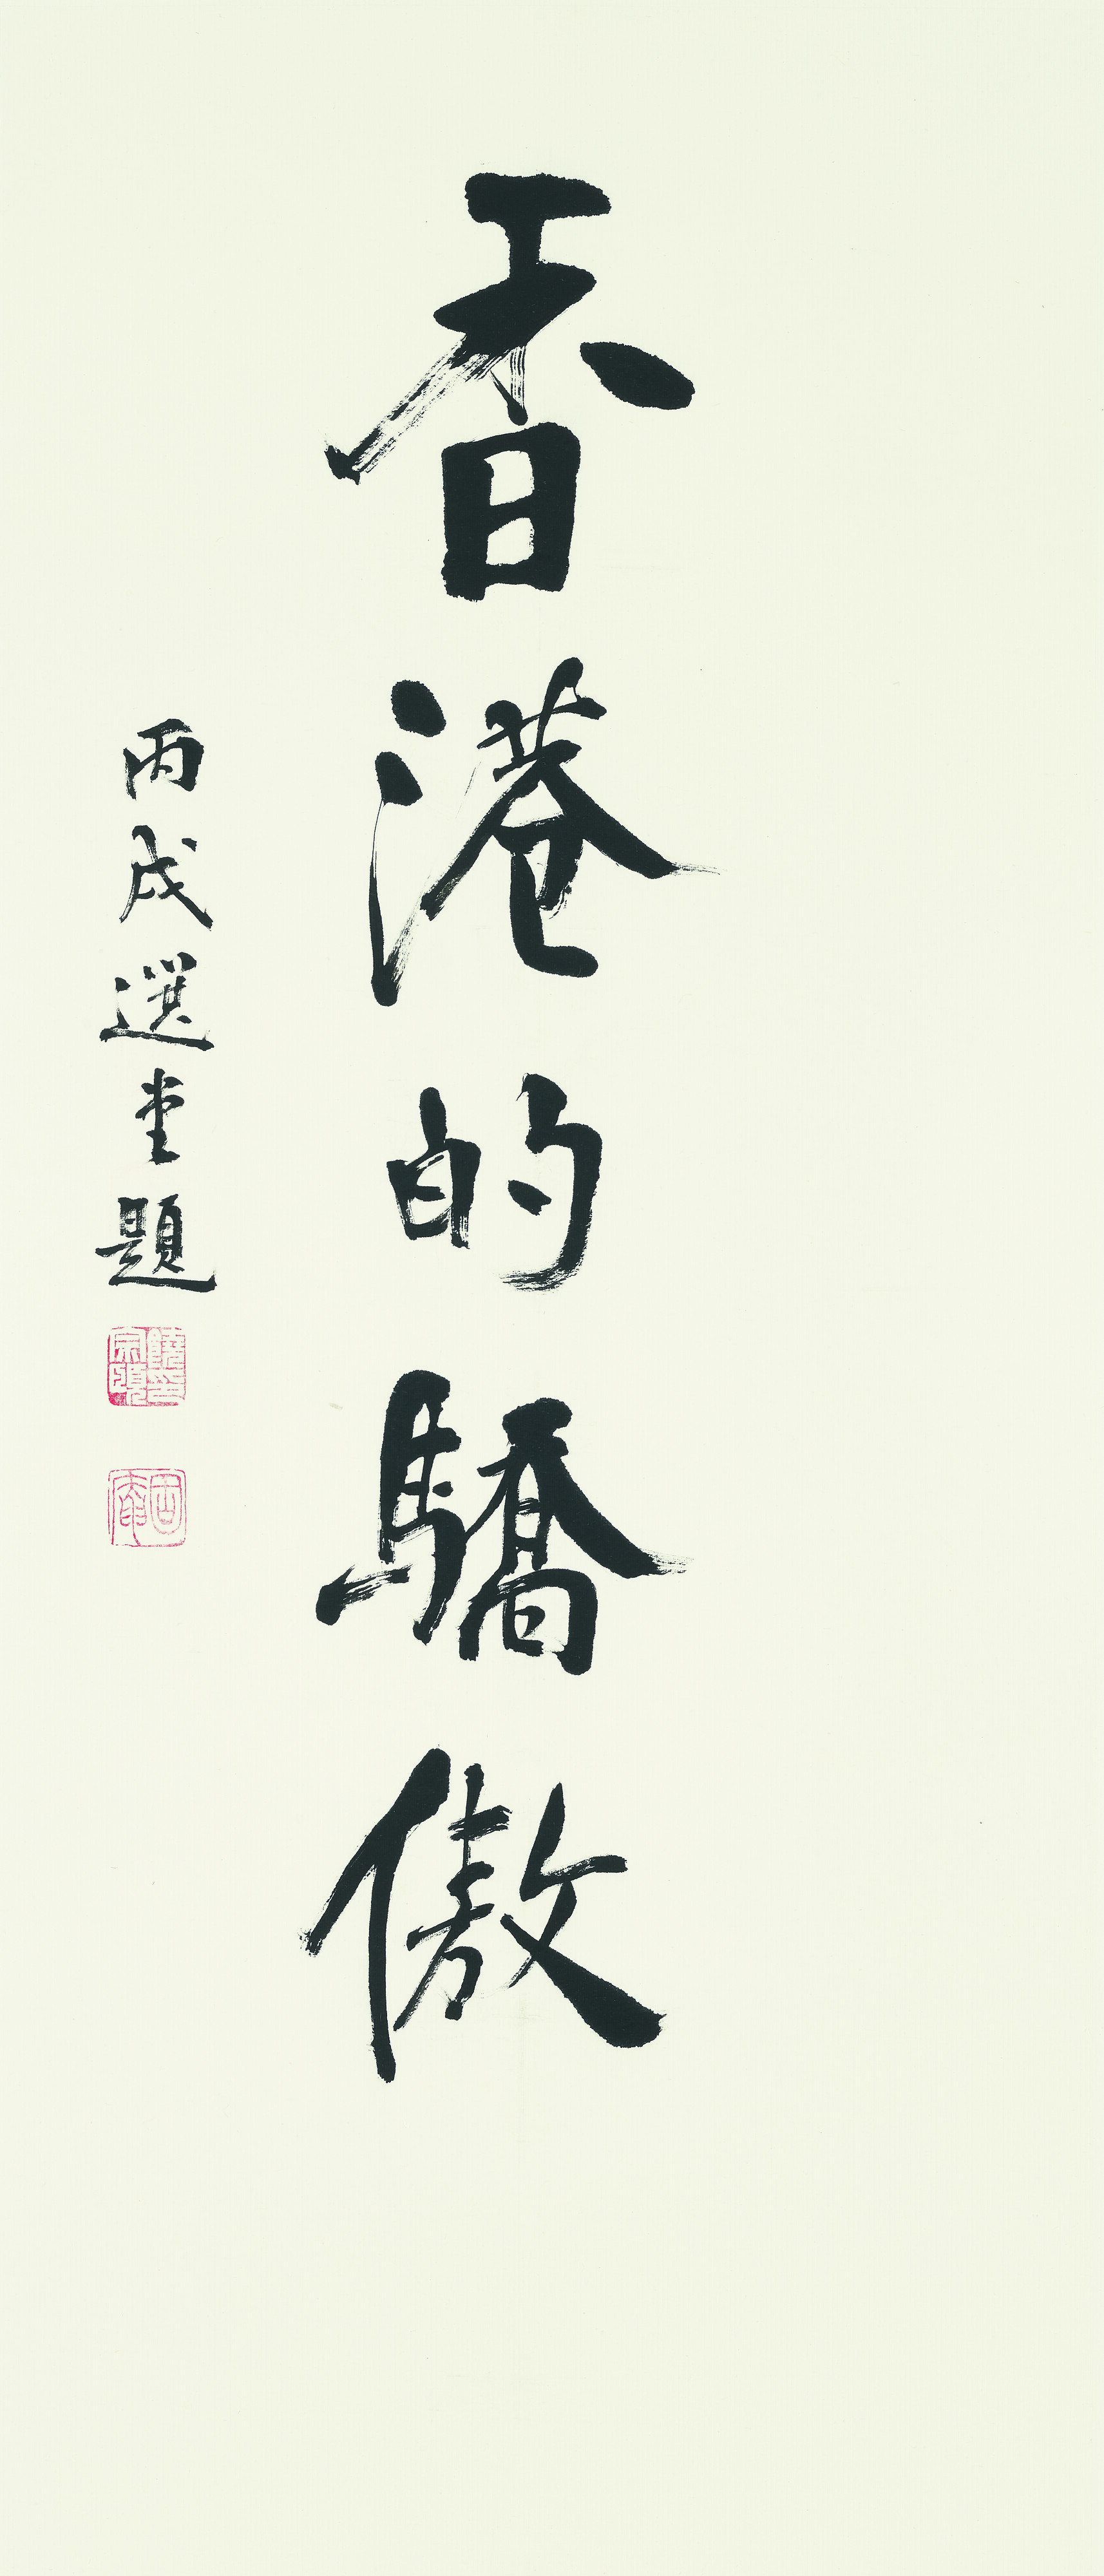 香港的驕傲
丙戌選堂題
饒宗頤印
固庵